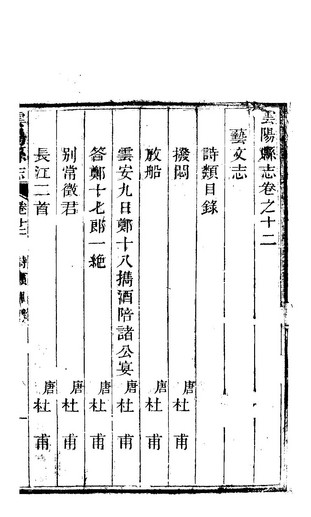 雲陽縣志卷之十二
藝文志
詩類目錄
撥悶 唐杜甫
放船 唐杜甫
雲安九日鄭十八攜酒陪諸公宴 唐杜甫
答鄭十七郎一絶 唐杜甫
别常徵君 唐杜甫
長江二首 唐杜甫